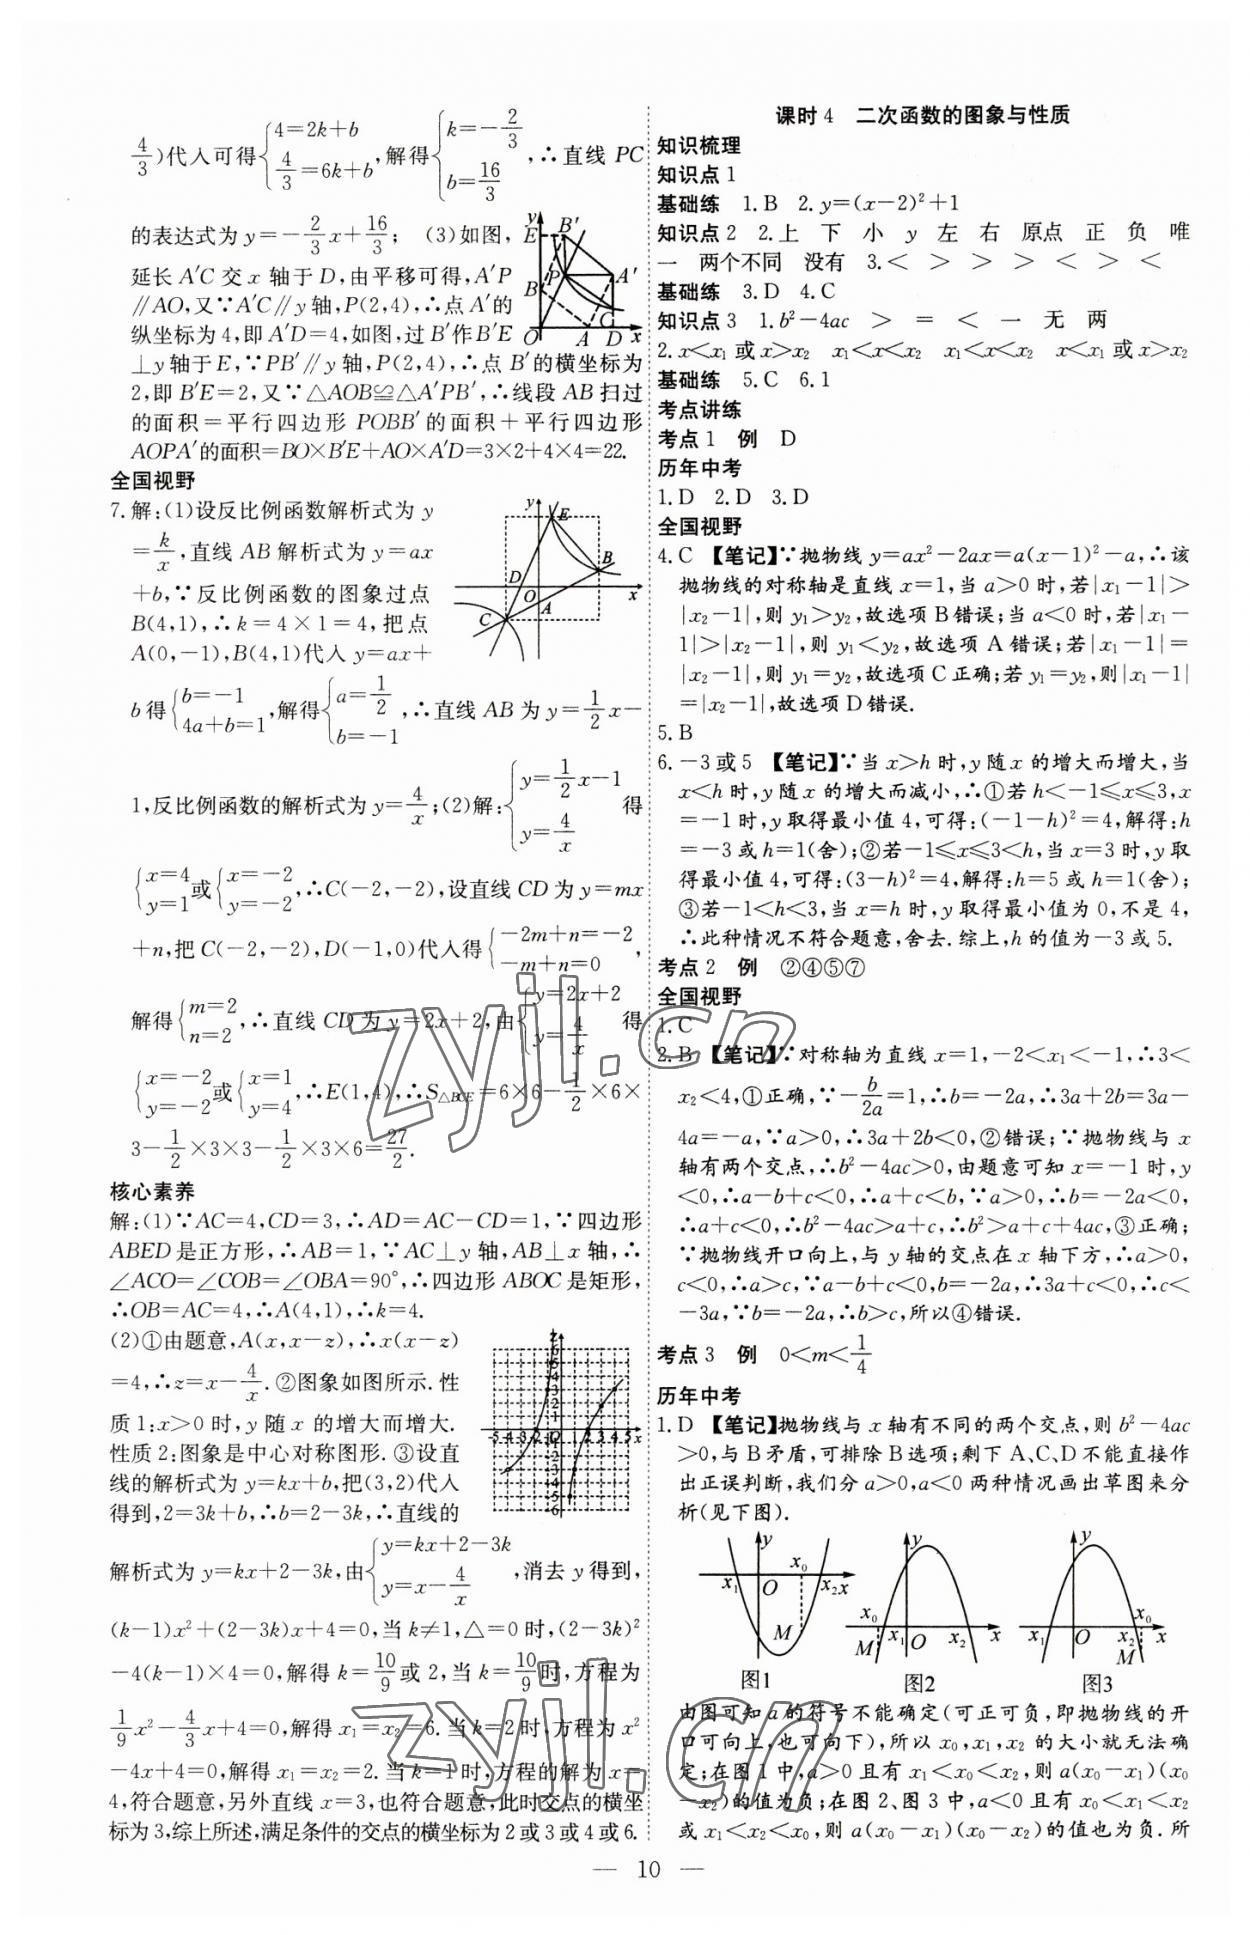 4/3)代入可得{4=2k+b, 4/3=6k+b,解得{k=-2/3, b=16/3,∴直线 PC
的表达式为 y=-2/3x+16/3; (3)如图,
延长 A′C 交 x 轴于 D,由平移可得,A′P
∥AO,又∵A′C∥y 轴,P(2,4),∴点 A′的
纵坐标为 4,即 A′D=4,如图,过 B′作 B′E
⊥y 轴于 E,∵PB′∥y 轴,P(2,4),∴点 B′的横坐标为
2,即 B′E=2,又∵△AOB≌△A′PB′,∴线段 AB 扫过
的面积=平行四边形 POBB′的面积+平行四边形
AOPA′的面积=BO×B′E+AO×A′D=3×2+4×4=22.
y E B′ P A′ B C O A D x
全国视野
7.解:(1)设反比例函数解析式为 y
=k/x,直线 AB 解析式为 y=ax
+b,∵反比例函数的图象过点
B(4,1),∴k=4×1=4,把点
A(0,-1),B(4,1)代入 y=ax+
y E B D O x A C
b得{b=-1, 4a+b=1,解得{a=1/2, b=-1,∴直线 AB 为 y=1/2x-
1,反比例函数的解析式为 y=4/x;(2)解:{y=1/2x-1, y=4/x 得
{x=4, y=1或{x=-2, y=-2,∴C(-2,-2),设直线 CD 为 y=mx
+n,把 C(-2,-2),D(-1,0)代入得{-2m+n=-2, -m+n=0,
解得{m=2, n=2,∴直线 CD 为 y=2x+2,由{y=2x+2, y=4/x 得
{x=-2, y=-2或{x=1, y=4,∴E(1,4),∴S△BCE=6×6-1/2×6×
3-1/2×3×3-1/2×3×6=27/2.
核心素养
解:(1)∵AC=4,CD=3,∴AD=AC-CD=1,∵四边形
ABED 是正方形,∴AB=1,∵AC⊥y 轴,AB⊥x 轴,∴
∠ACO=∠COB=∠OBA=90°,∴四边形 ABOC 是矩形,
∴OB=AC=4,∴A(4,1),∴k=4.
(2)①由题意,A(x,x-z),∴x(x-z)
=4,∴z=x-4/x.②图象如图所示.性
质 1:x>0 时,y 随 x 的增大而增大.
性质 2:图象是中心对称图形.③设直
线的解析式为 y=kx+b,把(3,2)代入
得到,2=3k+b,∴b=2-3k,∴直线的
解析式为 y=kx+2-3k,由{y=kx+2-3k, y=x-4/x,消去 y 得到,
(k-1)x²+(2-3k)x+4=0,当 k≠1,△=0 时,(2-3k)²
-4(k-1)×4=0,解得 k=10/9或 2,当 k=10/9时,方程为
1/9x²-4/3x+4=0,解得 x₁=x₂=6.当 k=2 时,方程为 x²
-4x+4=0,解得 x₁=x₂=2.当 k=1 时,方程的解为 x=
4,符合题意,另外直线 x=3,也符合题意,此时交点的横坐
标为 3,综上所述,满足条件的交点的横坐标为 2 或 3 或 4 或 6.
课时 4 二次函数的图象与性质
知识梳理
知识点 1
基础练 1.B 2.y=(x-2)²+1
知识点 2 2.上 下 小 y 左 右 原点 正 负 唯
一 两个不同 没有 3.< > > > < > <
基础练 3.D 4.C
知识点 3 1.b²-4ac > = < 一 无 两
2.x<x₁ 或 x>x₂ x₁<x<x₂ x₁<x<x₂ x<x₁ 或 x>x₂
基础练 5.C 6.1
考点讲练
考点 1 例 D
历年中考
1.D 2.D 3.D
全国视野
4.C 【笔记】∵抛物线 y=ax²-2ax=a(x-1)²-a,∴该
抛物线的对称轴是直线 x=1,当 a>0 时,若|x₁-1|>
|x₂-1|,则 y₁>y₂,故选项 B 错误;当 a<0 时,若|x₁-
1|>|x₂-1|,则 y₁<y₂,故选项 A 错误;若|x₁-1|=
|x₂-1|,则 y₁=y₂,故选项 C 正确;若 y₁=y₂,则|x₁-1|
=|x₂-1|,故选项 D 错误.
5.B
6.-3 或 5 【笔记】∵当 x>h 时,y 随 x 的增大而增大,当
x<h 时,y 随 x 的增大而减小,∴①若 h<-1≤x≤3,x
=-1 时,y 取得最小值 4,可得:(-1-h)²=4,解得:h
=-3 或 h=1(舍);②若-1≤x≤3<h,当 x=3 时,y 取
得最小值 4,可得:(3-h)²=4,解得:h=5 或 h=1(舍);
③若-1<h<3,当 x=h 时,y 取得最小值为 0,不是 4,
∴此种情况不符合题意,舍去.综上,h 的值为-3 或 5.
考点 2 例 ②④⑤⑦
全国视野
1.C
2.B 【笔记】∵对称轴为直线 x=1,-2<x₁<-1,∴3<
x₂<4,①正确,∵-b/2a=1,∴b=-2a,∴3a+2b=3a-
4a=-a,∵a>0,∴3a+2b<0,②错误;∵抛物线与 x
轴有两个交点,∴b²-4ac>0,由题意可知 x=-1 时,y
<0,∴a-b+c<0,∴a+c<b,∵a>0,∴b=-2a<0,
∴a+c<0,∴b²-4ac>a+c,∴b²>a+c+4ac,③正确;
∵抛物线开口向上,与 y 轴的交点在 x 轴下方,∴a>0,
c<0,∴a>c,∵a-b+c<0,b=-2a,∴3a+c<0,∴c<
-3a,∵b=-2a,∴b>c,所以④错误.
考点 3 例 0<m<1/4
历年中考
1.D 【笔记】抛物线与 x 轴有不同的两个交点,则 b²-4ac
>0,与 B 矛盾,可排除 B 选项;剩下 A、C、D 不能直接作
出正误判断,我们分 a>0,a<0 两种情况画出草图来分
析(见下图).
y x₀ x₁ O x₂ x M 图1
y x₀ M x₁ O x₂ x 图2
y x₁ O x₂ x₀ x M 图3
由图可知 a 的符号不能确定(可正可负,即抛物线的开
口可向上,也可向下),所以 x₀,x₁,x₂ 的大小就无法确
定;在图 1 中,a>0 且有 x₁<x₀<x₂,则 a(x₀-x₁)(x₀
-x₂)的值为负;在图 2、图 3 中,a<0 且有 x₀<x₁<x₂
或 x₁<x₂<x₀,则 a(x₀-x₁)(x₀-x₂)的值也为负.所
— 10 —
zyjl.cn
zyjl.cn